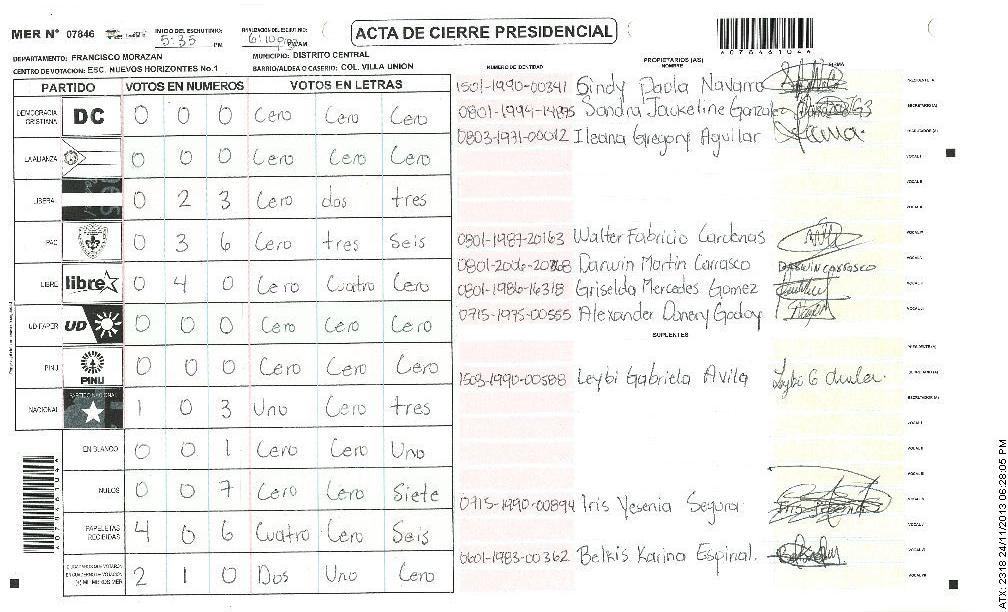 MER N° 07846
INICIO DEL ESCRUTINIO: 5:35 PM
FINALIZACION DEL ESCRUTINIO: 6:10 PM/AM
ACTA DE CIERRE PRESIDENCIAL
DEPARTAMENTO: FRANCISCO MORAZAN
MUNICIPIO: DISTRITO CENTRAL
CENTRO DE VOTACION: ESC. NUEVOS HORIZONTES No.1
BARRIO/ALDEA O CASERIO: COL. VILLA UNION
PARTIDO VOTOS EN NUMEROS VOTOS EN LETRAS
DEMOCRACIA CRISTIANA DC 0 0 0 Cero Cero Cero
LA ALIANZA 0 0 0 Cero Cero Cero
LIBERAL 0 2 3 Cero dos tres
PAC 0 3 6 Cero tres Seis
LIBRE libre 0 4 0 Cero Cuatro Cero
UD-FAPER UD 0 0 0 Cero Cero Cero
PINU PINU 0 0 0 Cero Cero Cero
NACIONAL PARTIDO NACIONAL 1 0 3 Uno Cero tres
EN BLANCO 0 0 1 Cero Cero Uno
NULOS 0 0 7 Cero Cero Siete
PAPELETAS RECIBIDAS 4 0 6 Cuatro Cero Seis
2 1 0 Dos Uno Cero
NUMERO DE IDENTIDAD
PROPIETARIOS (AS)
NOMBRE
FIRMA
1501-1990-00341 Cindy Paola Navarro
0801-1994-14895 Sandra Jackeline Gonzalez
0803-1971-00012 Ileana Gregory Aguilar
0801-1987-20163 Walter Fabricio Cardenas
Darwin Martin Carrasco DARWIN CARRASCO
0801-1986-16318 Griselda Mercedes Gomez
0715-1975-00555 Alexander Donery Godoy
SUPLENTES
1503-1990-00588 Leybi Gabriela Avila
0715-1990-00894 Iris Yesenia Segura
0601-1983-00362 Belkis Karina Espinal.
07846104
ATX: 2318 24/11/2013 06:28:05 PM